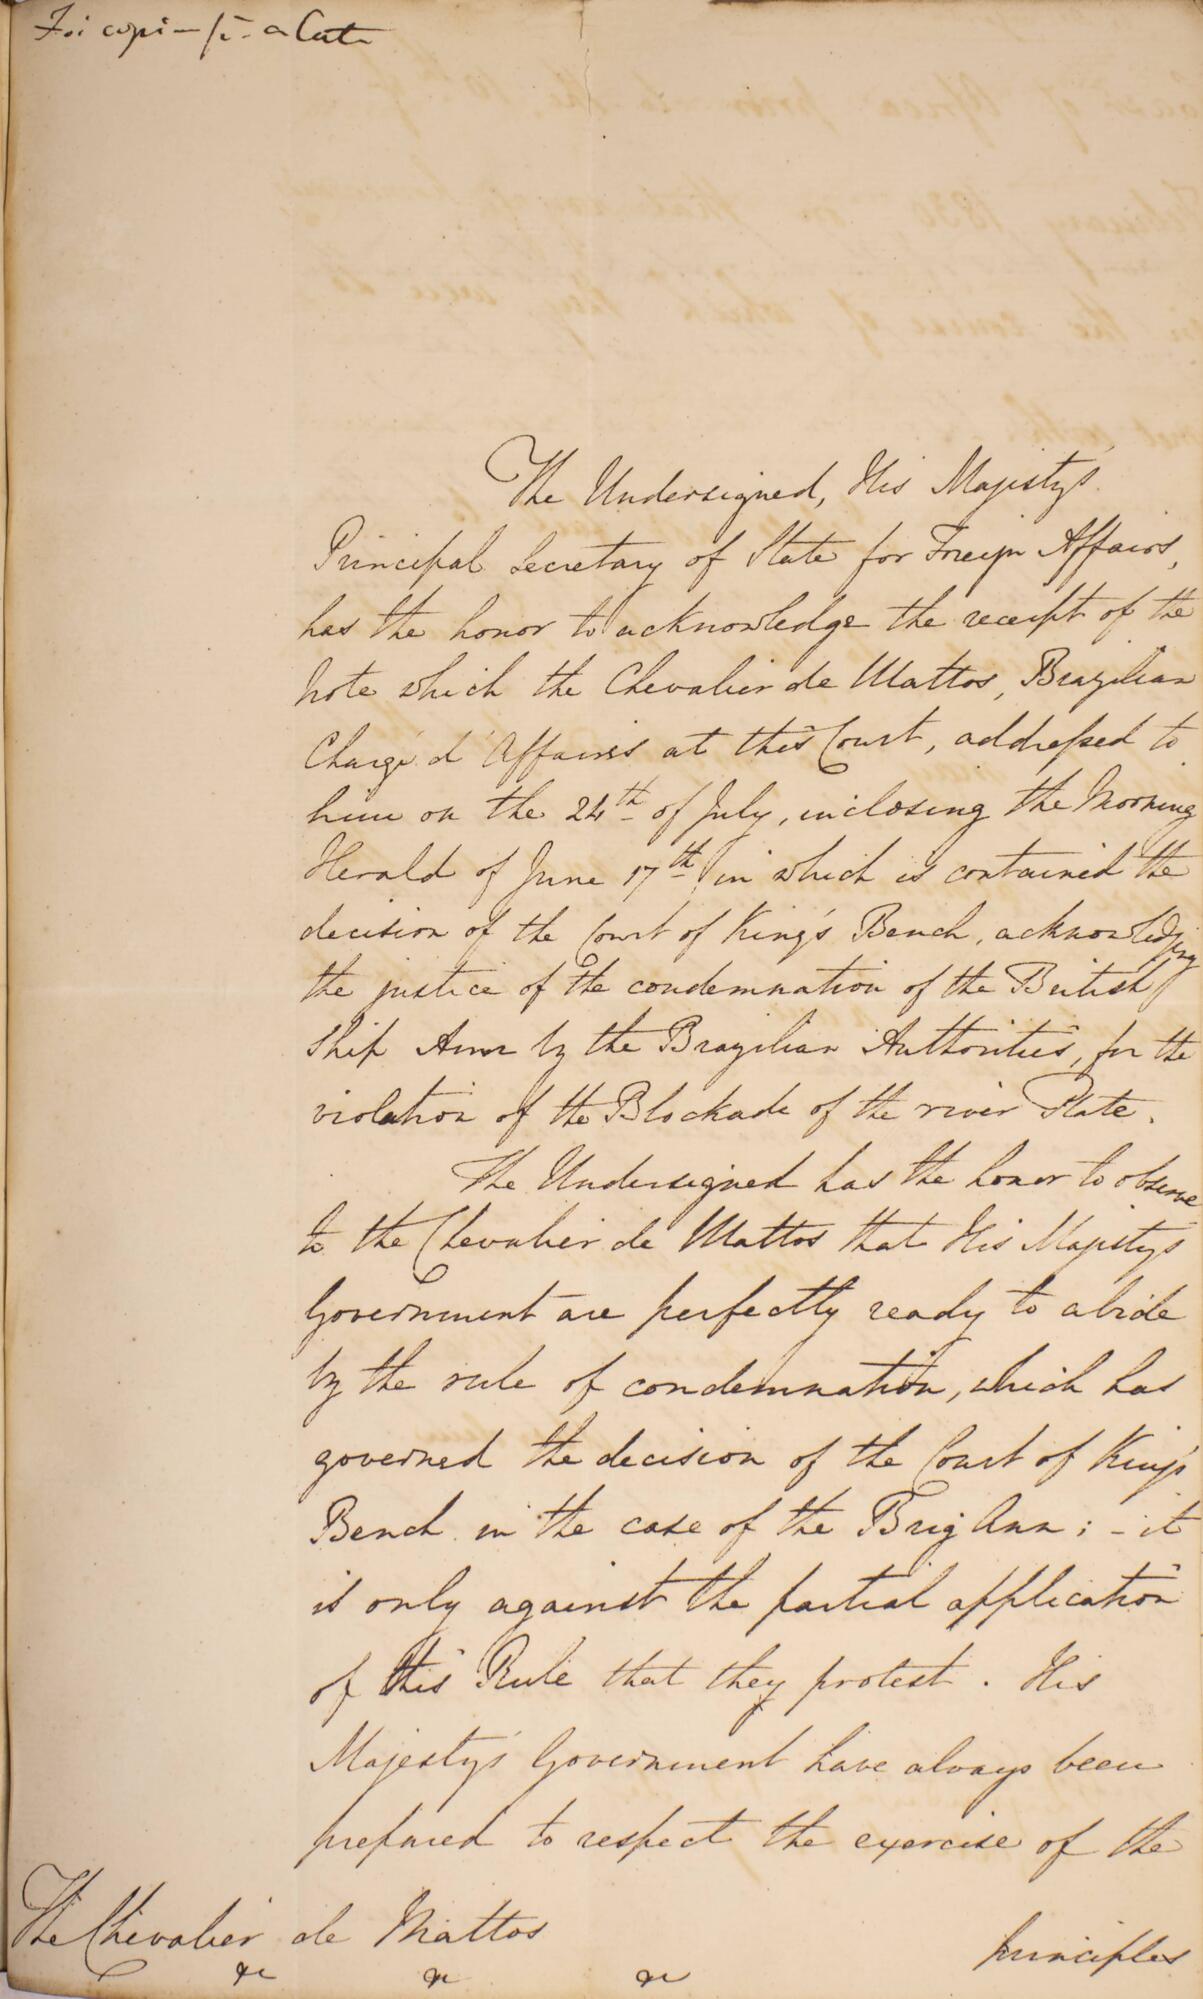 Foi copi- a Cart
The Undersigned, His Majesty's
Principal Secretary of State for Foreign Affairs,
has the honor to acknowledge the receipt of the
Note which the Chevalier de Mattos, Brazilian
Chargé d'Affaires at this Court, addressed to
him on the 24th of July, inclosing the Morning
Herald of June 17th in which is contained the
decision of the Court of King's Bench, acknowledging
the justice of the condemnation of the British
Ship Ann by the Brazilian Authorities, for the
violation of the Blockade of the river Plate.
The Undersigned has the honor to observe
to the Chevalier de Mattos that His Majesty's
Government are perfectly ready to abide
by the rule of condemnation, which has
governed the decision of the Court of King's
Bench in the case of the Brig Ann; - it
is only against the partial application
of this Rule that they protest. His
Majesty's Government have always been
prepared to respect the exercise of the
principles
The Chevalier de Mattos
&c &c &c